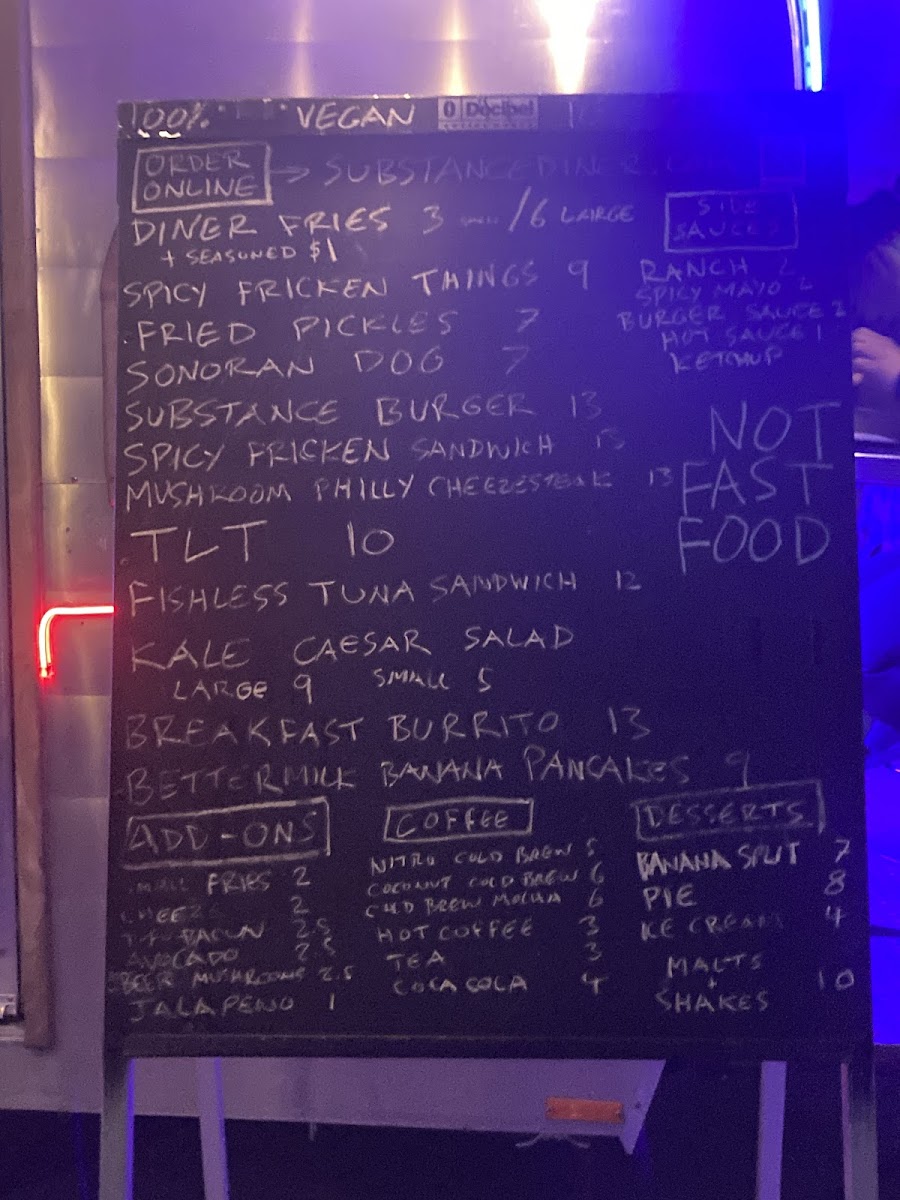 100% VEGAN 0 Decibel
ORDER ONLINE → SUBSTANCEDINER
DINER FRIES 3 /6 LARGE
+ SEASONED $1
SPICY FRICKEN THINGS 9
FRIED PICKLES 7
SONORAN DOG 7
SUBSTANCE BURGER 13
SPICY FRICKEN SANDWICH 13
MUSHROOM PHILLY CHEEZESTEAK 13
TLT 10
FISHLESS TUNA SANDWICH 12
KALE CAESAR SALAD
LARGE 9 SMALL 5
BREAKFAST BURRITO 13
BETTERMILK BANANA PANCAKES 9
SIDE
SAUCES
RANCH 2
SPICY MAYO 2
BURGER SAUCE 2
HOT SAUCE 1
KETCHUP
NOT
FAST
FOOD
ADD-ONS
SMALL FRIES 2
CHEEZE 2
BACUN 2.5
AVOCADO 2.5
BEER MUSHROOMS 2.5
JALAPENO 1
COFFEE
NITRO COLD BREW 5
COCONUT COLD BREW 6
COLD BREW MOCHA 6
HOT COFFEE 3
TEA 3
COCA COLA 4
DESSERTS
BANANA SPLIT 7
PIE 8
ICE CREAM 4
MALTS
+ 10
SHAKES